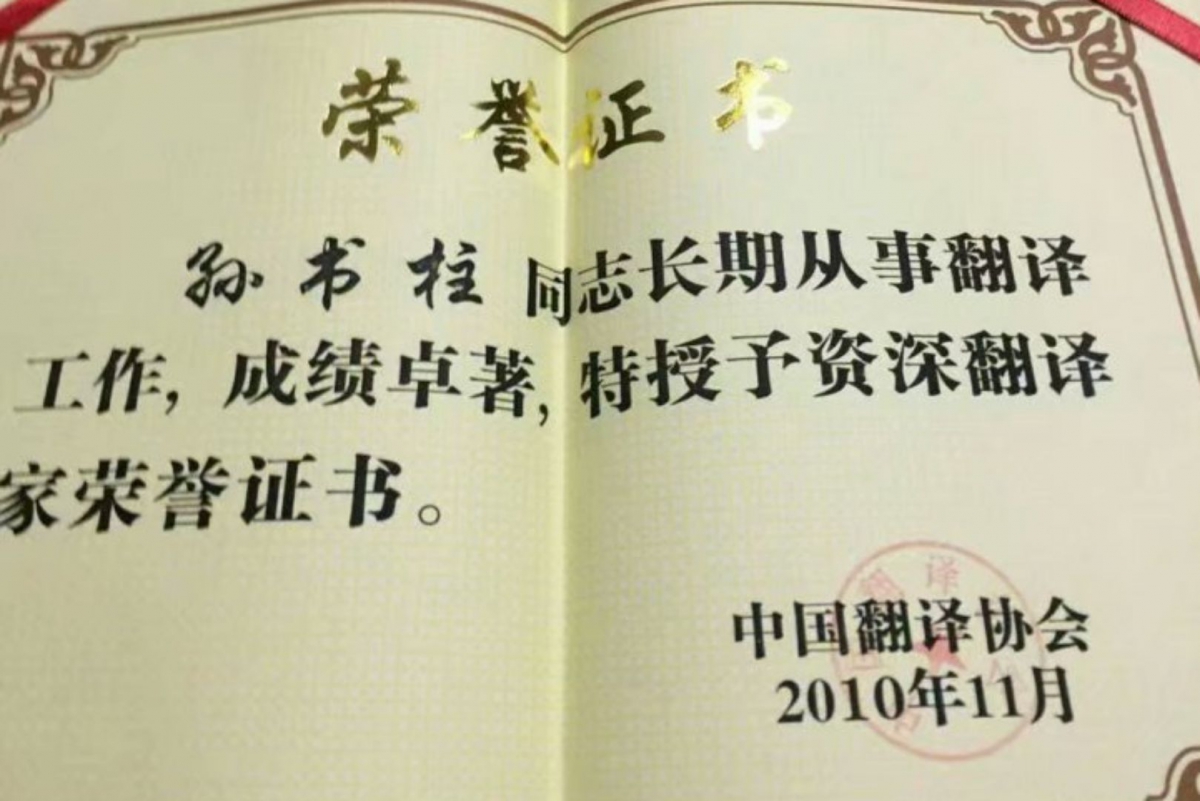 荣誉证书
孙书柱同志长期从事翻译
工作，成绩卓著，特授予资深翻译
家荣誉证书。
中国翻译协会
2010年11月